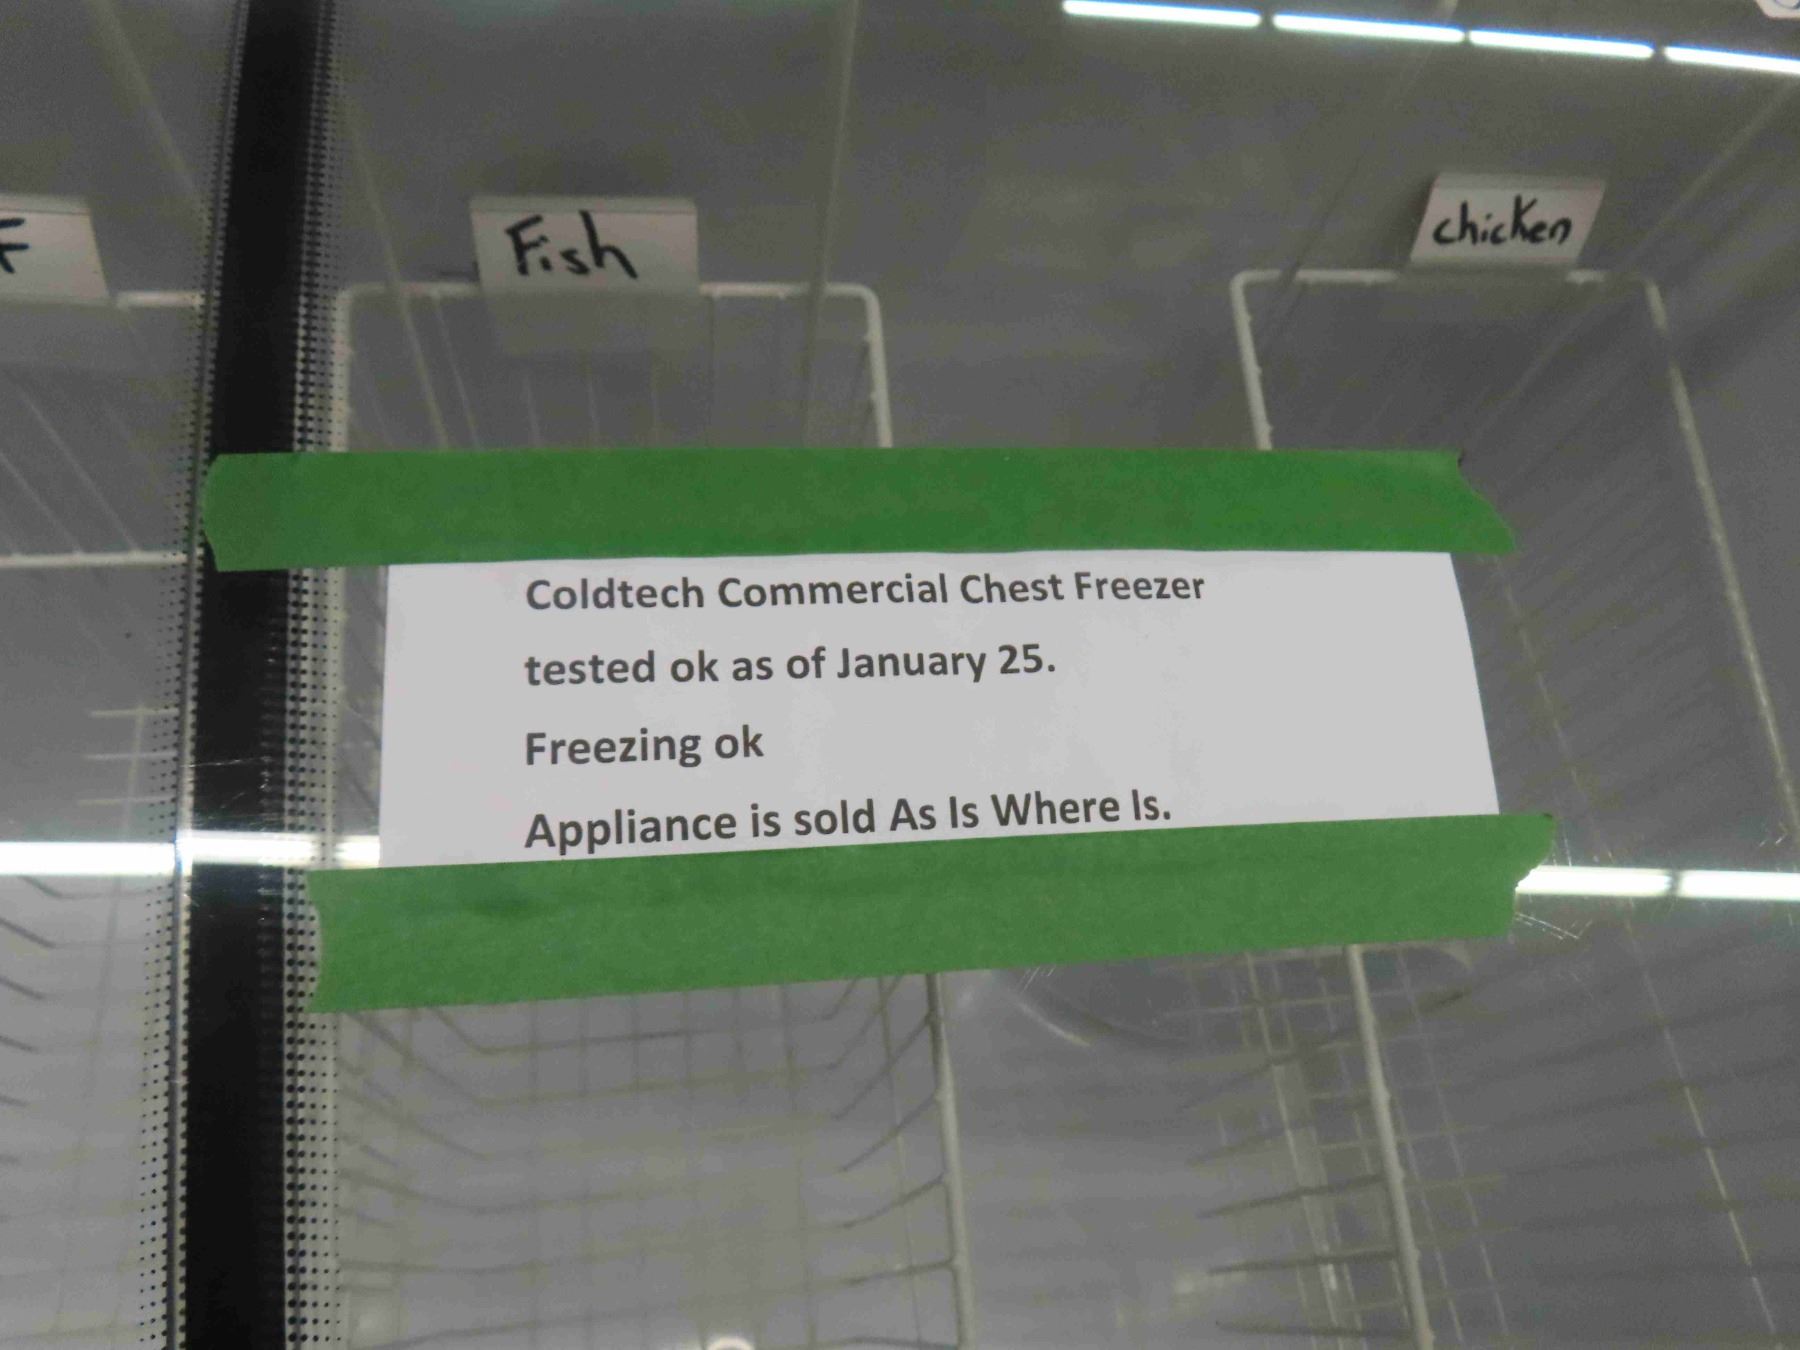 Fish
chicken
Coldtech Commercial Chest Freezer
tested ok as of January 25.
Freezing ok
Appliance is sold As Is Where Is.